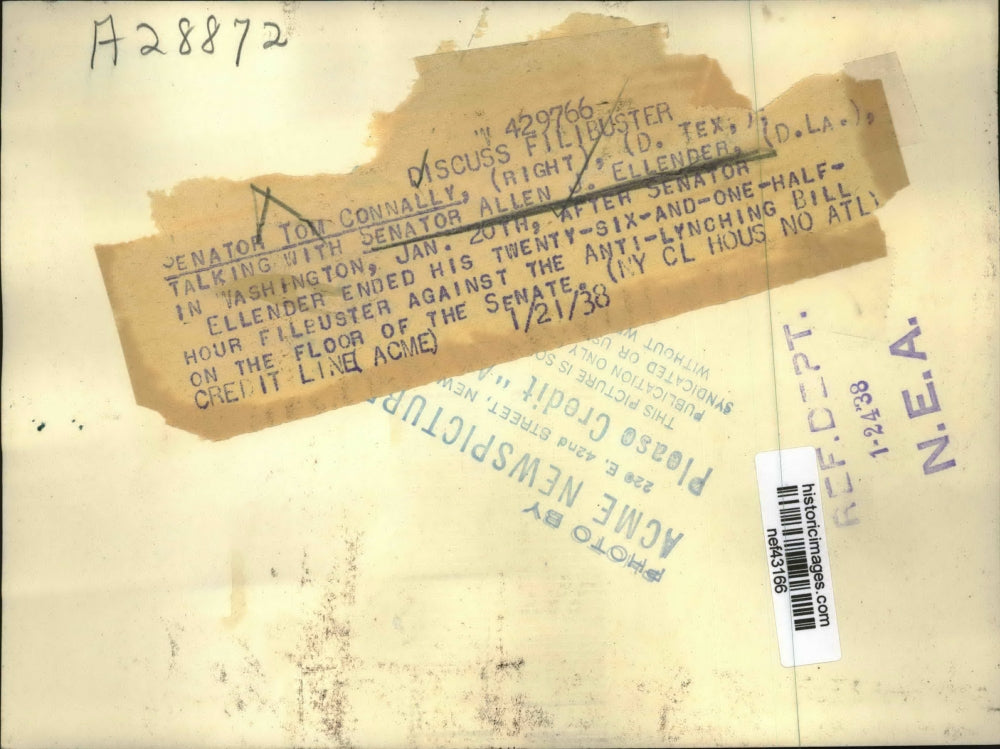 A28872
W 429766-
DISCUSS FILIBUSTER
SENATOR TOM CONNALLY, (RIGHT), (D. TEX,),
TALKING WITH SENATOR ALLEN J. ELLENDER, (D.LA.),
IN WASHINGTON, JAN. 20TH, AFTER SENATOR
ELLENDER ENDED HIS TWENTY-SIX-AND-ONE-HALF-
HOUR FILBUSTER AGAINST THE ANTI-LYNCHING BILL
ON THE FLOOR OF THE SENATE. (NY CL HOUS NO ATL)
CREDIT LINE( ACME) 1/21/38
PHOTO BY
ACME NEWSPICTURE
220 E. 42nd STREET, NEW
Please Credit "A
THIS PICTURE IS SO
PUBLICATION ONLY
SYNDICATED OR US
WITHOUT W
REF.DEPT.
1-24-38
N.E.A.
historicimages.com
nef43166